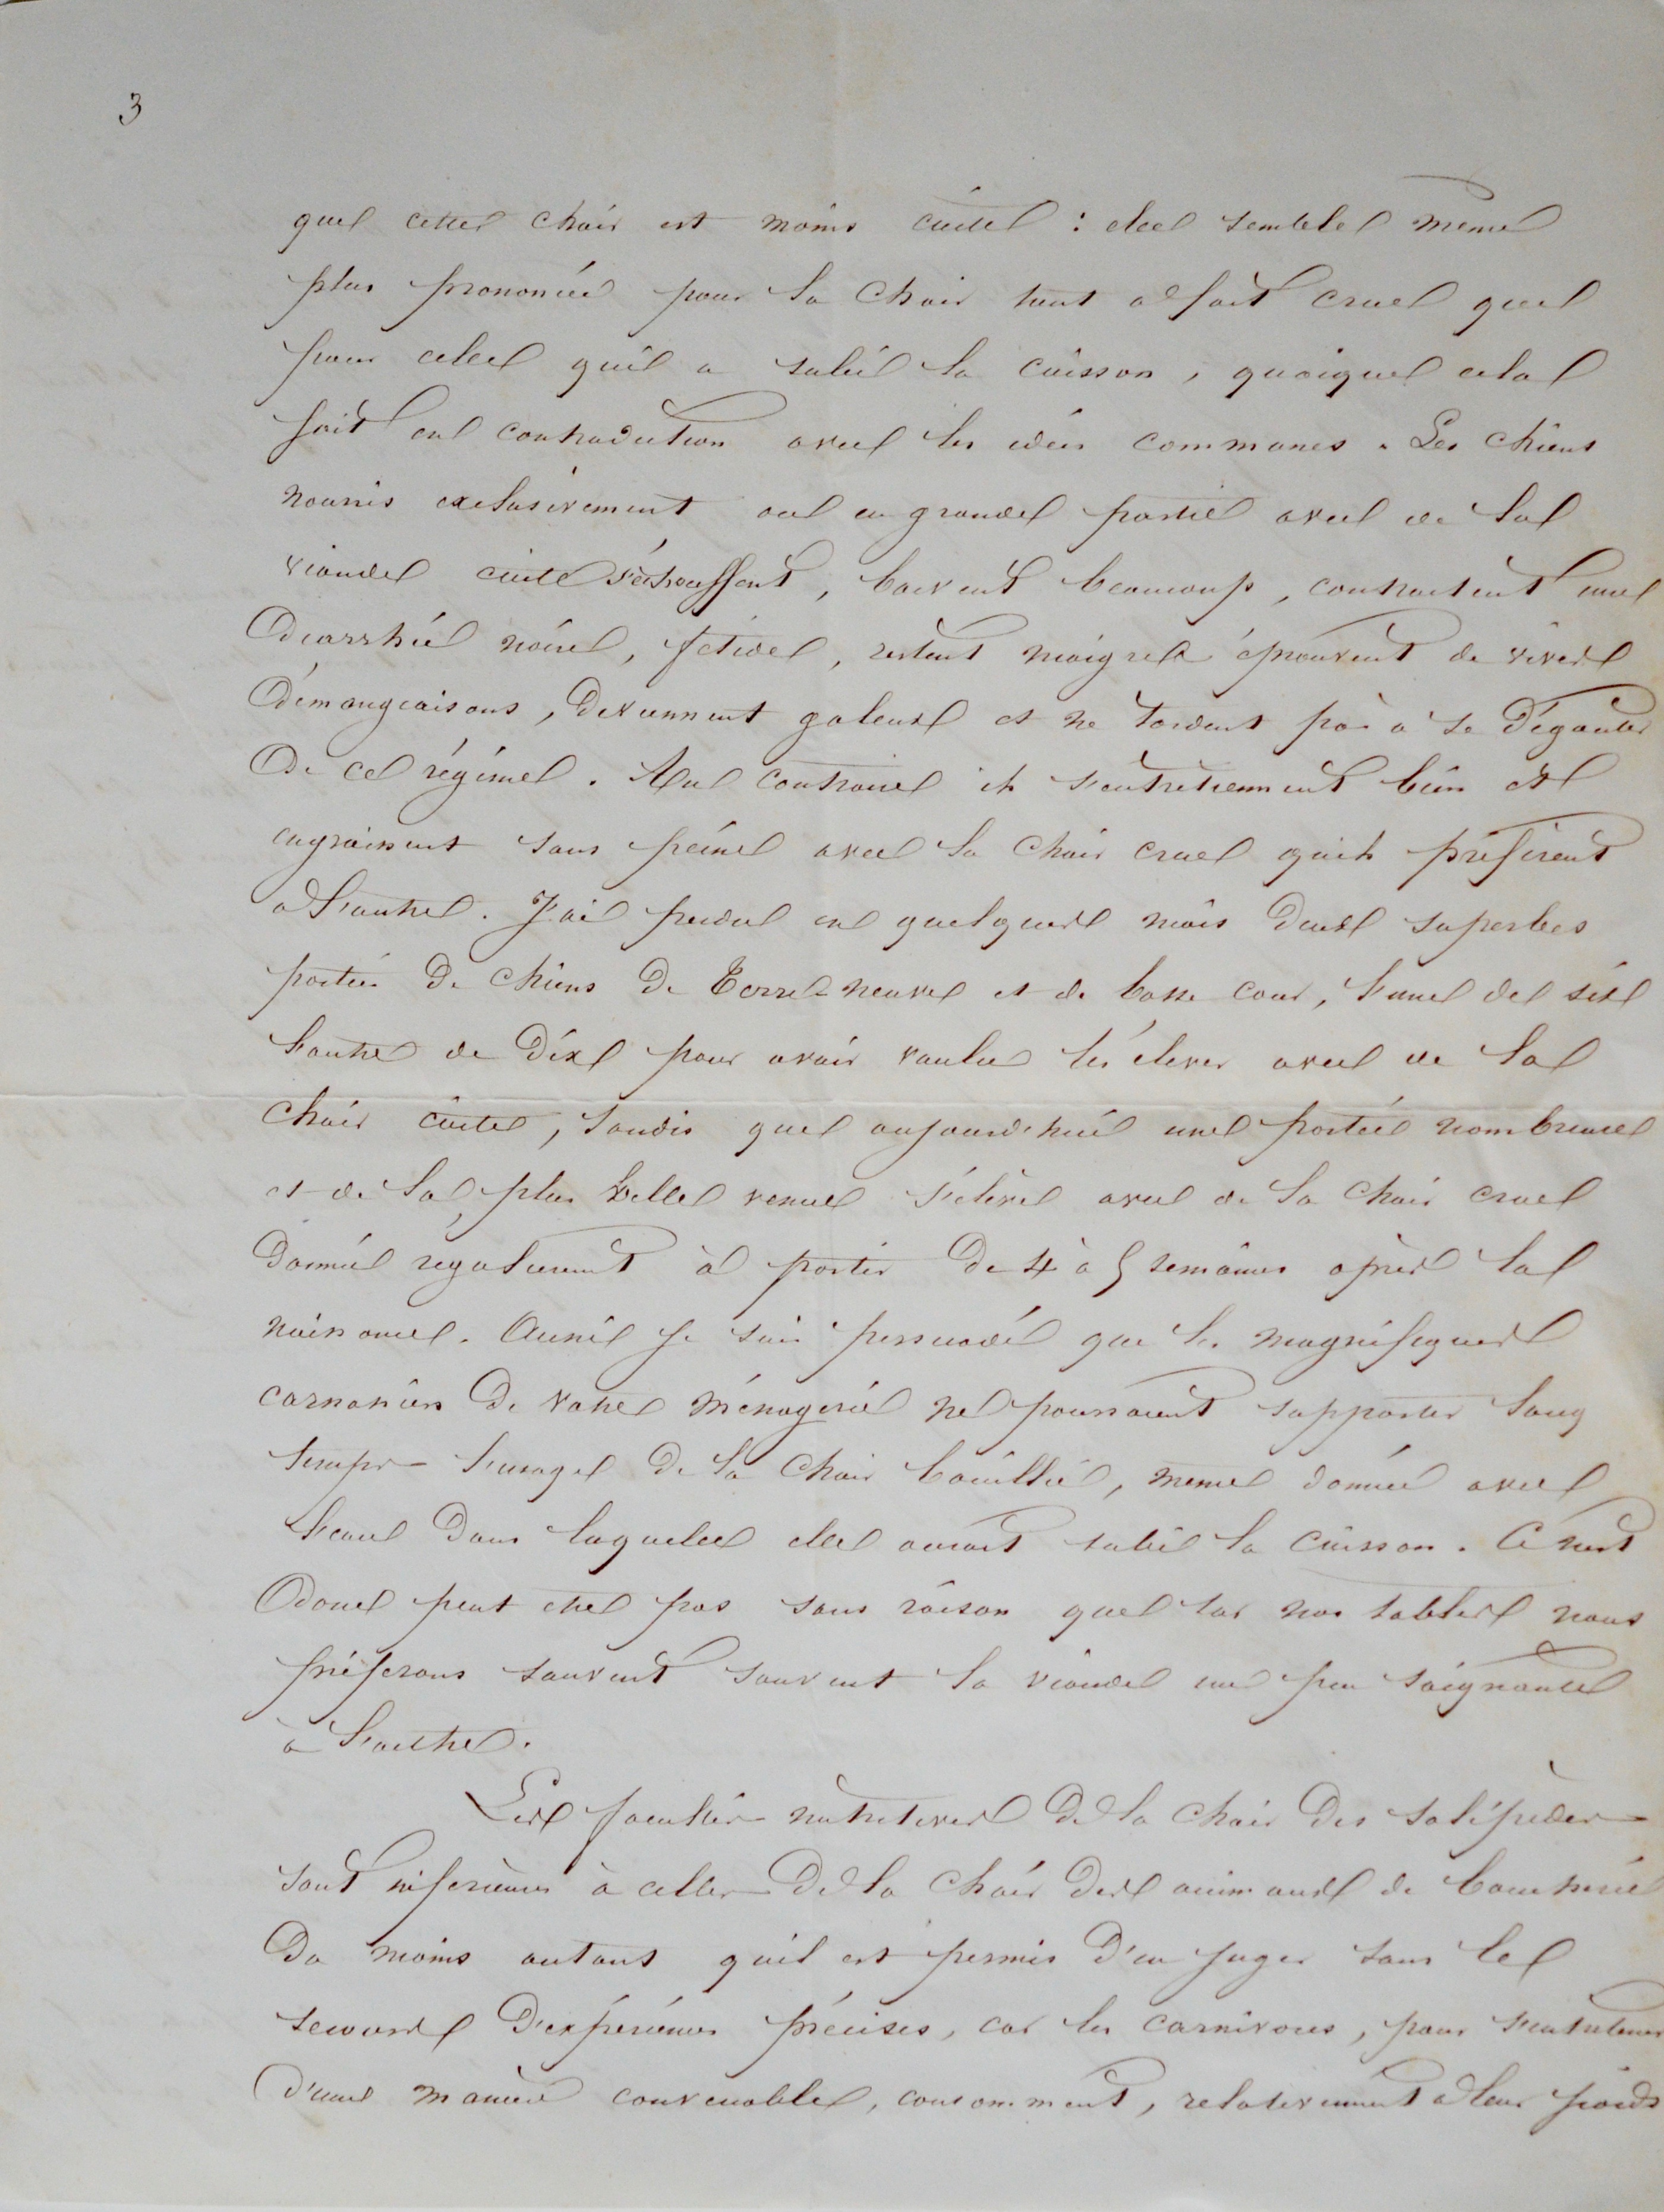 3
que cette chair est moins cuite : elle semble meme
plus prononcée pour la chair tout a fait crue que
pour celle qui a subi la cuisson, quoique cela
soit en contradiction avec les idées communes. Les chiens
nourris exclusivement ou en grande partie avec de la
viande cuite s'échauffent, boivent beaucoup, contractent une
Diarrhée noire, fétide, restent maigres éprouvent de vives
Démangeaisons, Deviennent galeux et ne tardent pas a se Dégouter
De ce régime. Au contraire ils s'entretiennent bien et
engraissent sans peine avec la chair crue qu'ils préfèrent
a l'autre. J'ai perdu en quelques mois Deux superbes
portées De chiens De Terre-neuve et de basse cour, l'une de six
l'autre de Dix pour avoir voulu les élever avec de la
chair cuite, tandis que aujourd'hui une portée nombreuse
et de la plus belle venue s'élève avec de la chair crue
Donnée régulierement à partir De 4 a 5 semaines après la
naissance. Aussi je suis persuadé que les magnifiques
carnassiers De votre ménagerie ne pourraient supporter long
temps l'usage De la chair bouillie, meme donnée avec
l'eau Dans laquelle elle aurait subi la cuisson. Ce n'est
Donc peut etre pas sans raison que sur nos tables nous
préferons souvent souvent la viande un peu saignante
à l'autre.
Les facultés nutritives De la chair Des solipèdes
sont inférieures à celles De la chair Des animaux de boucherie
Du moins autant qu'il est permis D'en juger sans le
secours D'expériences précises, car les carnivores, pour s'entretenir
D'une manière convenable, consomment, relativement a leur poids